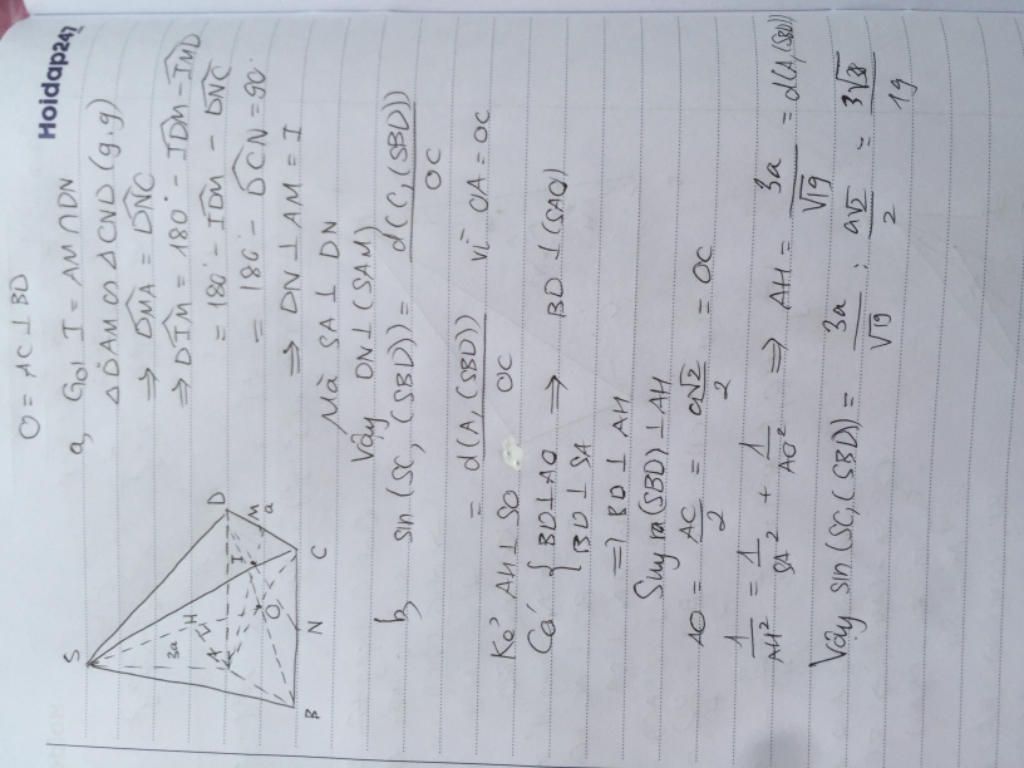 Hoidap247
O = AC ⊥ BD
a, Gọi I = AM ∩ DN
△DAM ∽ △CND (g.g)
⇒ \widehat{DMA} = \widehat{DNC}
⇒ \widehat{DIM} = 180° - \widehat{IDM} - \widehat{IMD}
= 180° - \widehat{IDM} - \widehat{DNC}
= 180° - \widehat{DCN} = 90°
⇒ DN ⊥ AM = I
Mà SA ⊥ DN
Vậy DN ⊥ (SAM)
b, sin (SC, (SBD)) = d(C, (SBD)) / OC
= d(A, (SBD)) / OC vì OA = OC
Kẻ AH ⊥ SO
Có { BD ⊥ AO
BD ⊥ SA ⇒ BD ⊥ (SAO)
⇒ BD ⊥ AH
Suy ra (SBD) ⊥ AH
AO = AC / 2 = a√2 / 2 = OC
1 / AH² = 1 / SA² + 1 / AO² ⇒ AH = 3a / √19 = d(A, (SBD))
Vậy sin (SC, (SBD)) = 3a / √19 : a√2 / 2 = 3√38 / 19
S
3a
H
A
I
D
M
a
O
C
N
B